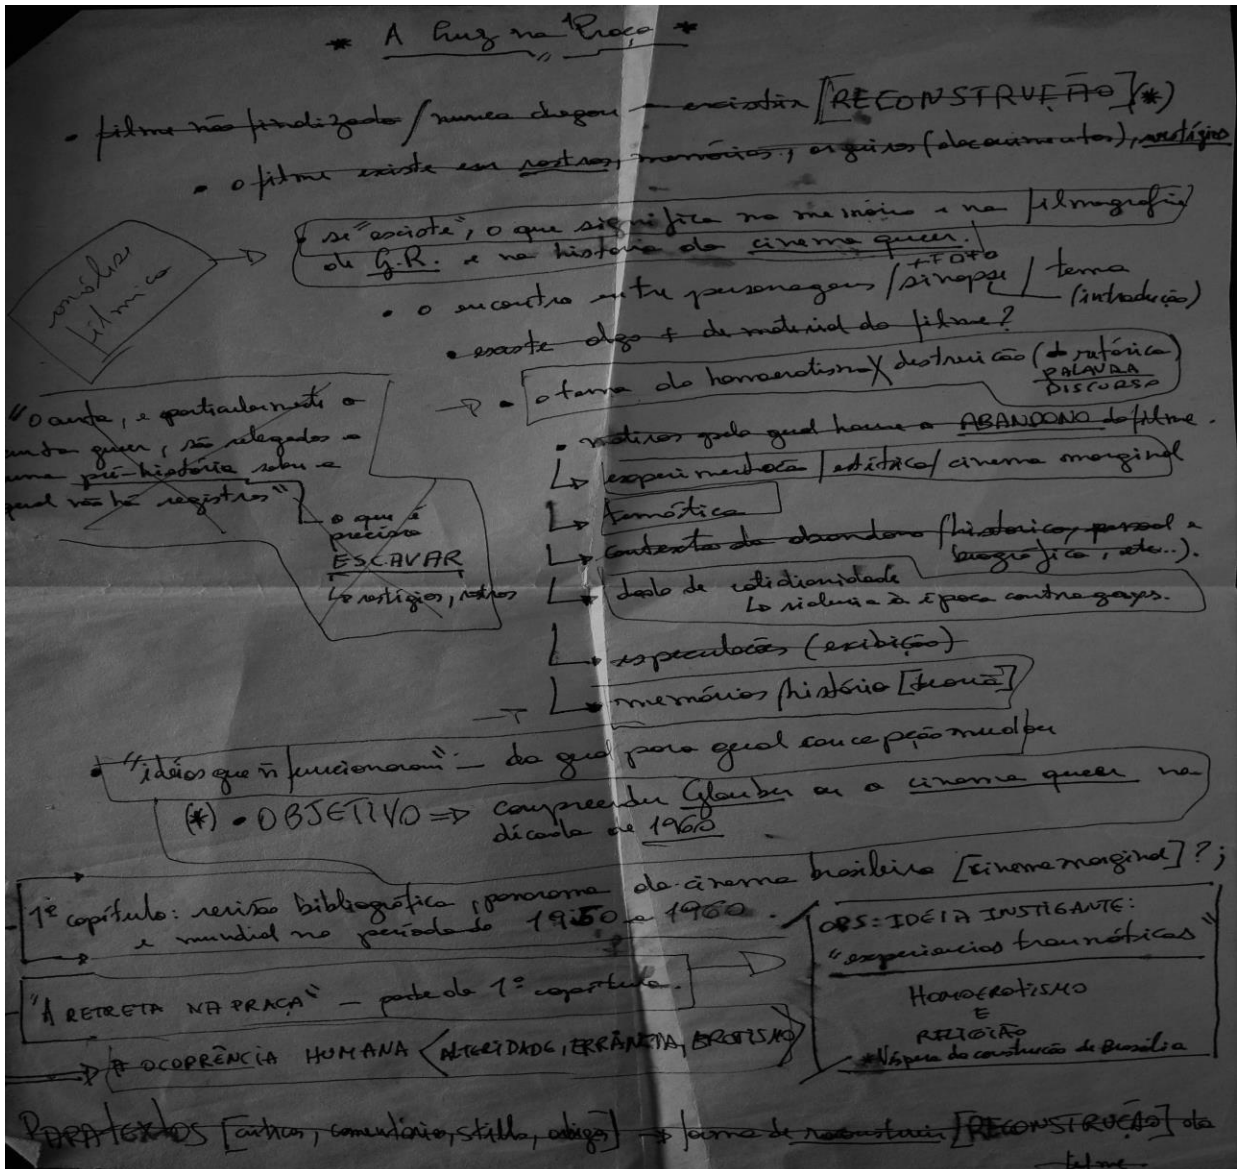 * A Cruz na Praça *
• filme não finalizado / nunca chegou a existir [RECONSTRUÇÃO] (*)
• o filme existe em rastros, memórias, arquivos (documentos), vestígios
• se "existe", o que significa na memória e na filmografia
de G.R. e na história do cinema queer.
análise
fílmica
+ FOTO
• o encontro entre personagens / sinopse / tema
(introdução)
• existe algo + de material do filme?
• o tema do homoerotismo X destruição (da retórica)
PALAVRA
DISCURSO
"O curta, e particularmente o
curta queer, são relegados a
uma pré-história sobre a
qual não há registros"
o que é
preciso
ESCAVAR
↳ vestígios, rastros
• motivos pelo qual houve o ABANDONO do filme.
↳ experimentação / estética / cinema marginal
↳ temática
↳ contexto do abandono (histórico, pessoal e
biográfico, etc..).
↳ dado de cotidianidade
↳ violência à época contra gays.
↳ especulações (exibição)
↳ memórias / história
• "idéias que ñ funcionaram" – da qual para qual concepção mudou
(*) • OBJETIVO => compreender Glauber ou o cinema queer na
década de 1960
1º capítulo: revisão bibliográfica, panorama do cinema brasileiro [cinema marginal]?;
e mundial no período de 1950 a 1960.
OBS: IDEIA INSTIGANTE:
"experiências traumáticas"
HOMOEROTISMO
E
RELIGIÃO
* Véspera da construção de Brasília
"A RETRETA NA PRAÇA" – parte do 1º capítulo.
# OCORRÊNCIA HUMANA < ALTERIDADE, ERRÂNCIA, EROTISMO >
PARATEXTOS [críticas, comentário, stills, artigos] → forma de reconstruir [RECONSTRUÇÃO] do
filme